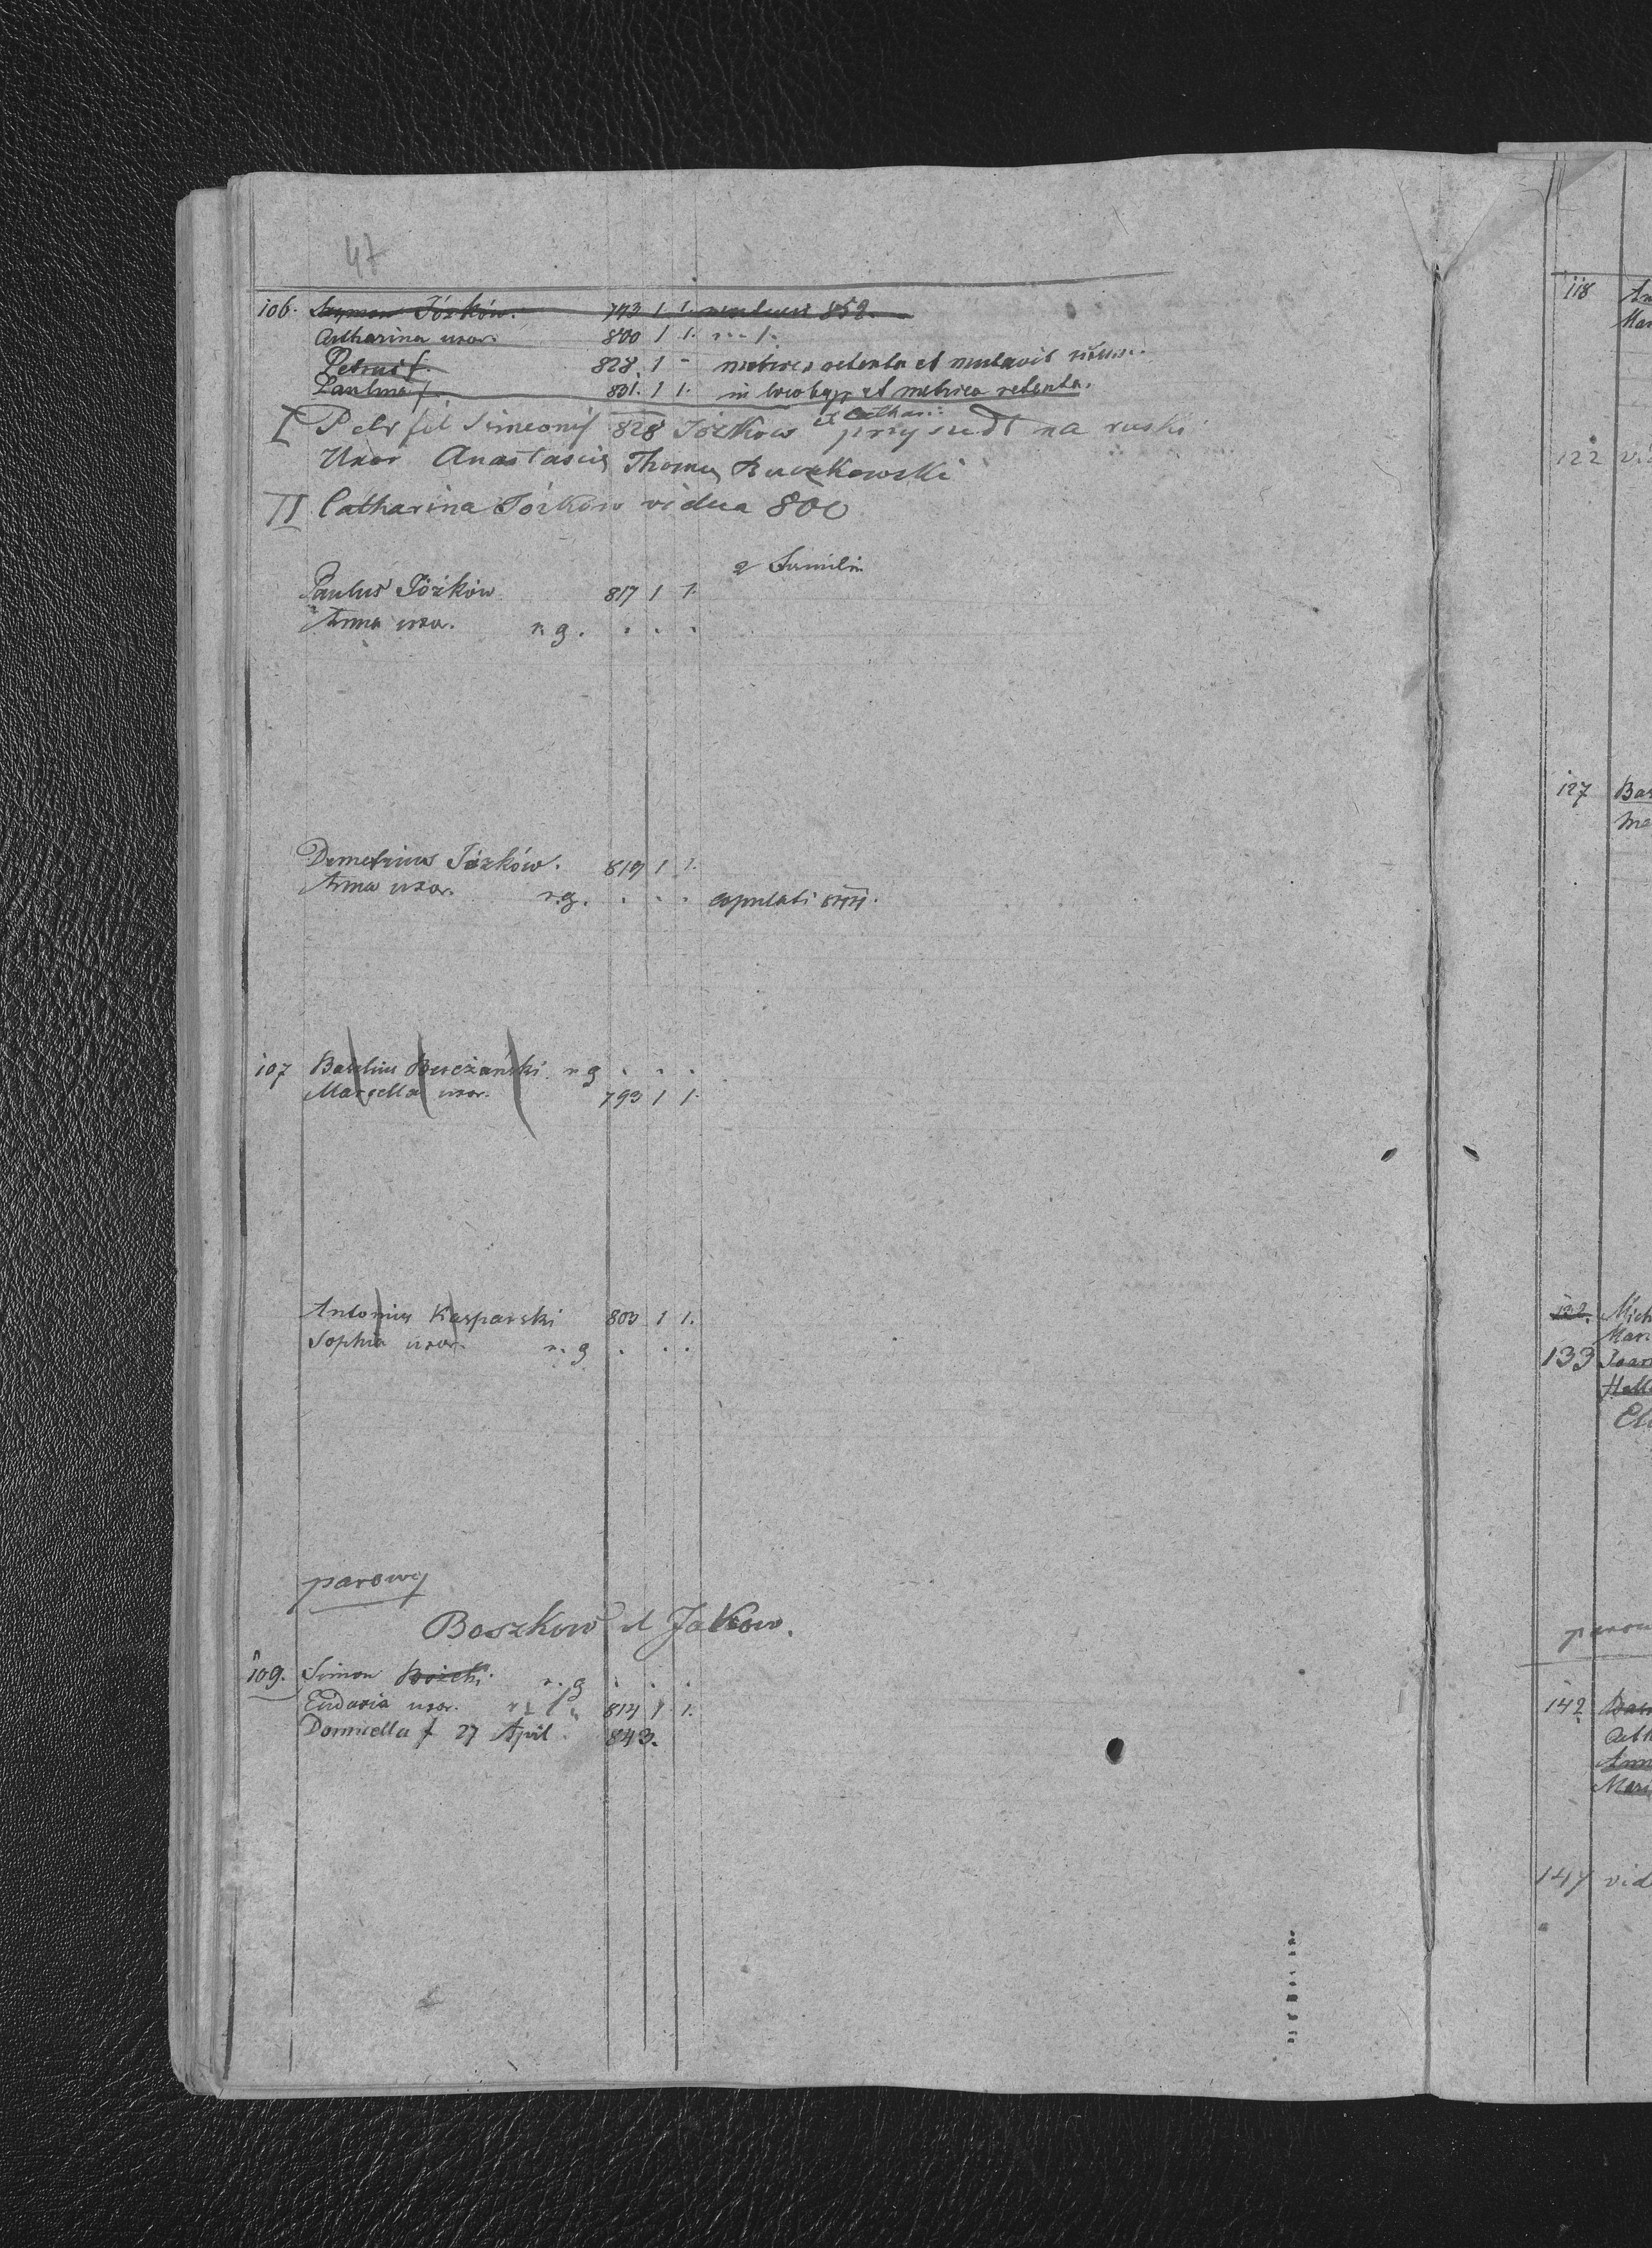 47
106. Szymon Józków. 793 1 1. mortuus 852.
Catharina uxor. 800 1 1.
Petrus f. 828. 1 - metrica retenta et mutavit ritum.
Paulina f. 831. 1 1. in loco et metrica retenta.
I Petr fil Simeonis 828 Józkow et Cathari: przyszedł na ruski
Uxor Anastasia Thomą Buczkowski
II Catharina Józków vidua 800
2 Familia
Paulus Józków 817 1 1.
Anna uxor. r. g. . . .
Demetrius Józków. 819 1 1.
Anna uxor. r. g. . . . copulati 844.
107 Basilius Buczański r g . . .
Marcella uxor. 793 1 1.
Antonius Kasparski 803 1 1.
Sophia uxor. r. g . . .
parowy
Boszkow et Jakow.
109. Simon r. g . . .
Eudoxia uxor. 814 1 1.
Domicella f 27 April. 843.
118
Mar
122 vi
127 Bas
Ma
132. Mich
Mar
133 Joan
Hell
parow
142
Cath
Ann
Mari
147 vid